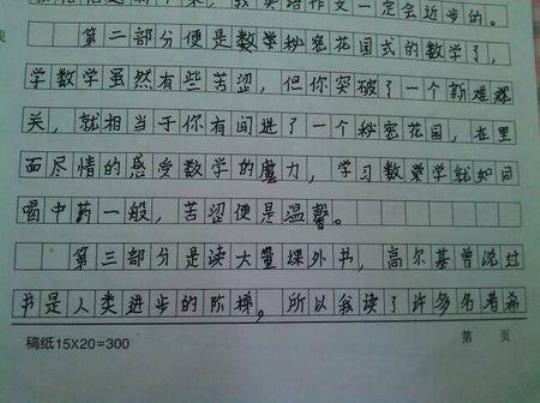 英语作文一定会近步的。
第二部分便是数学秘密花园式的数学了，
学数学虽然有些苦涩，但你突破了一个新难题
关，就相当于你有间进了一个秘密花园，在里
面尽情的感受数学的魔力，学习数学就如同
喝中药一般，苦涩便是温馨。
第三部分是读大量课外书，高尔基曾说过
书是人类进步的阶梯，所以我读了许多名着
稿纸15X20=300
第 页